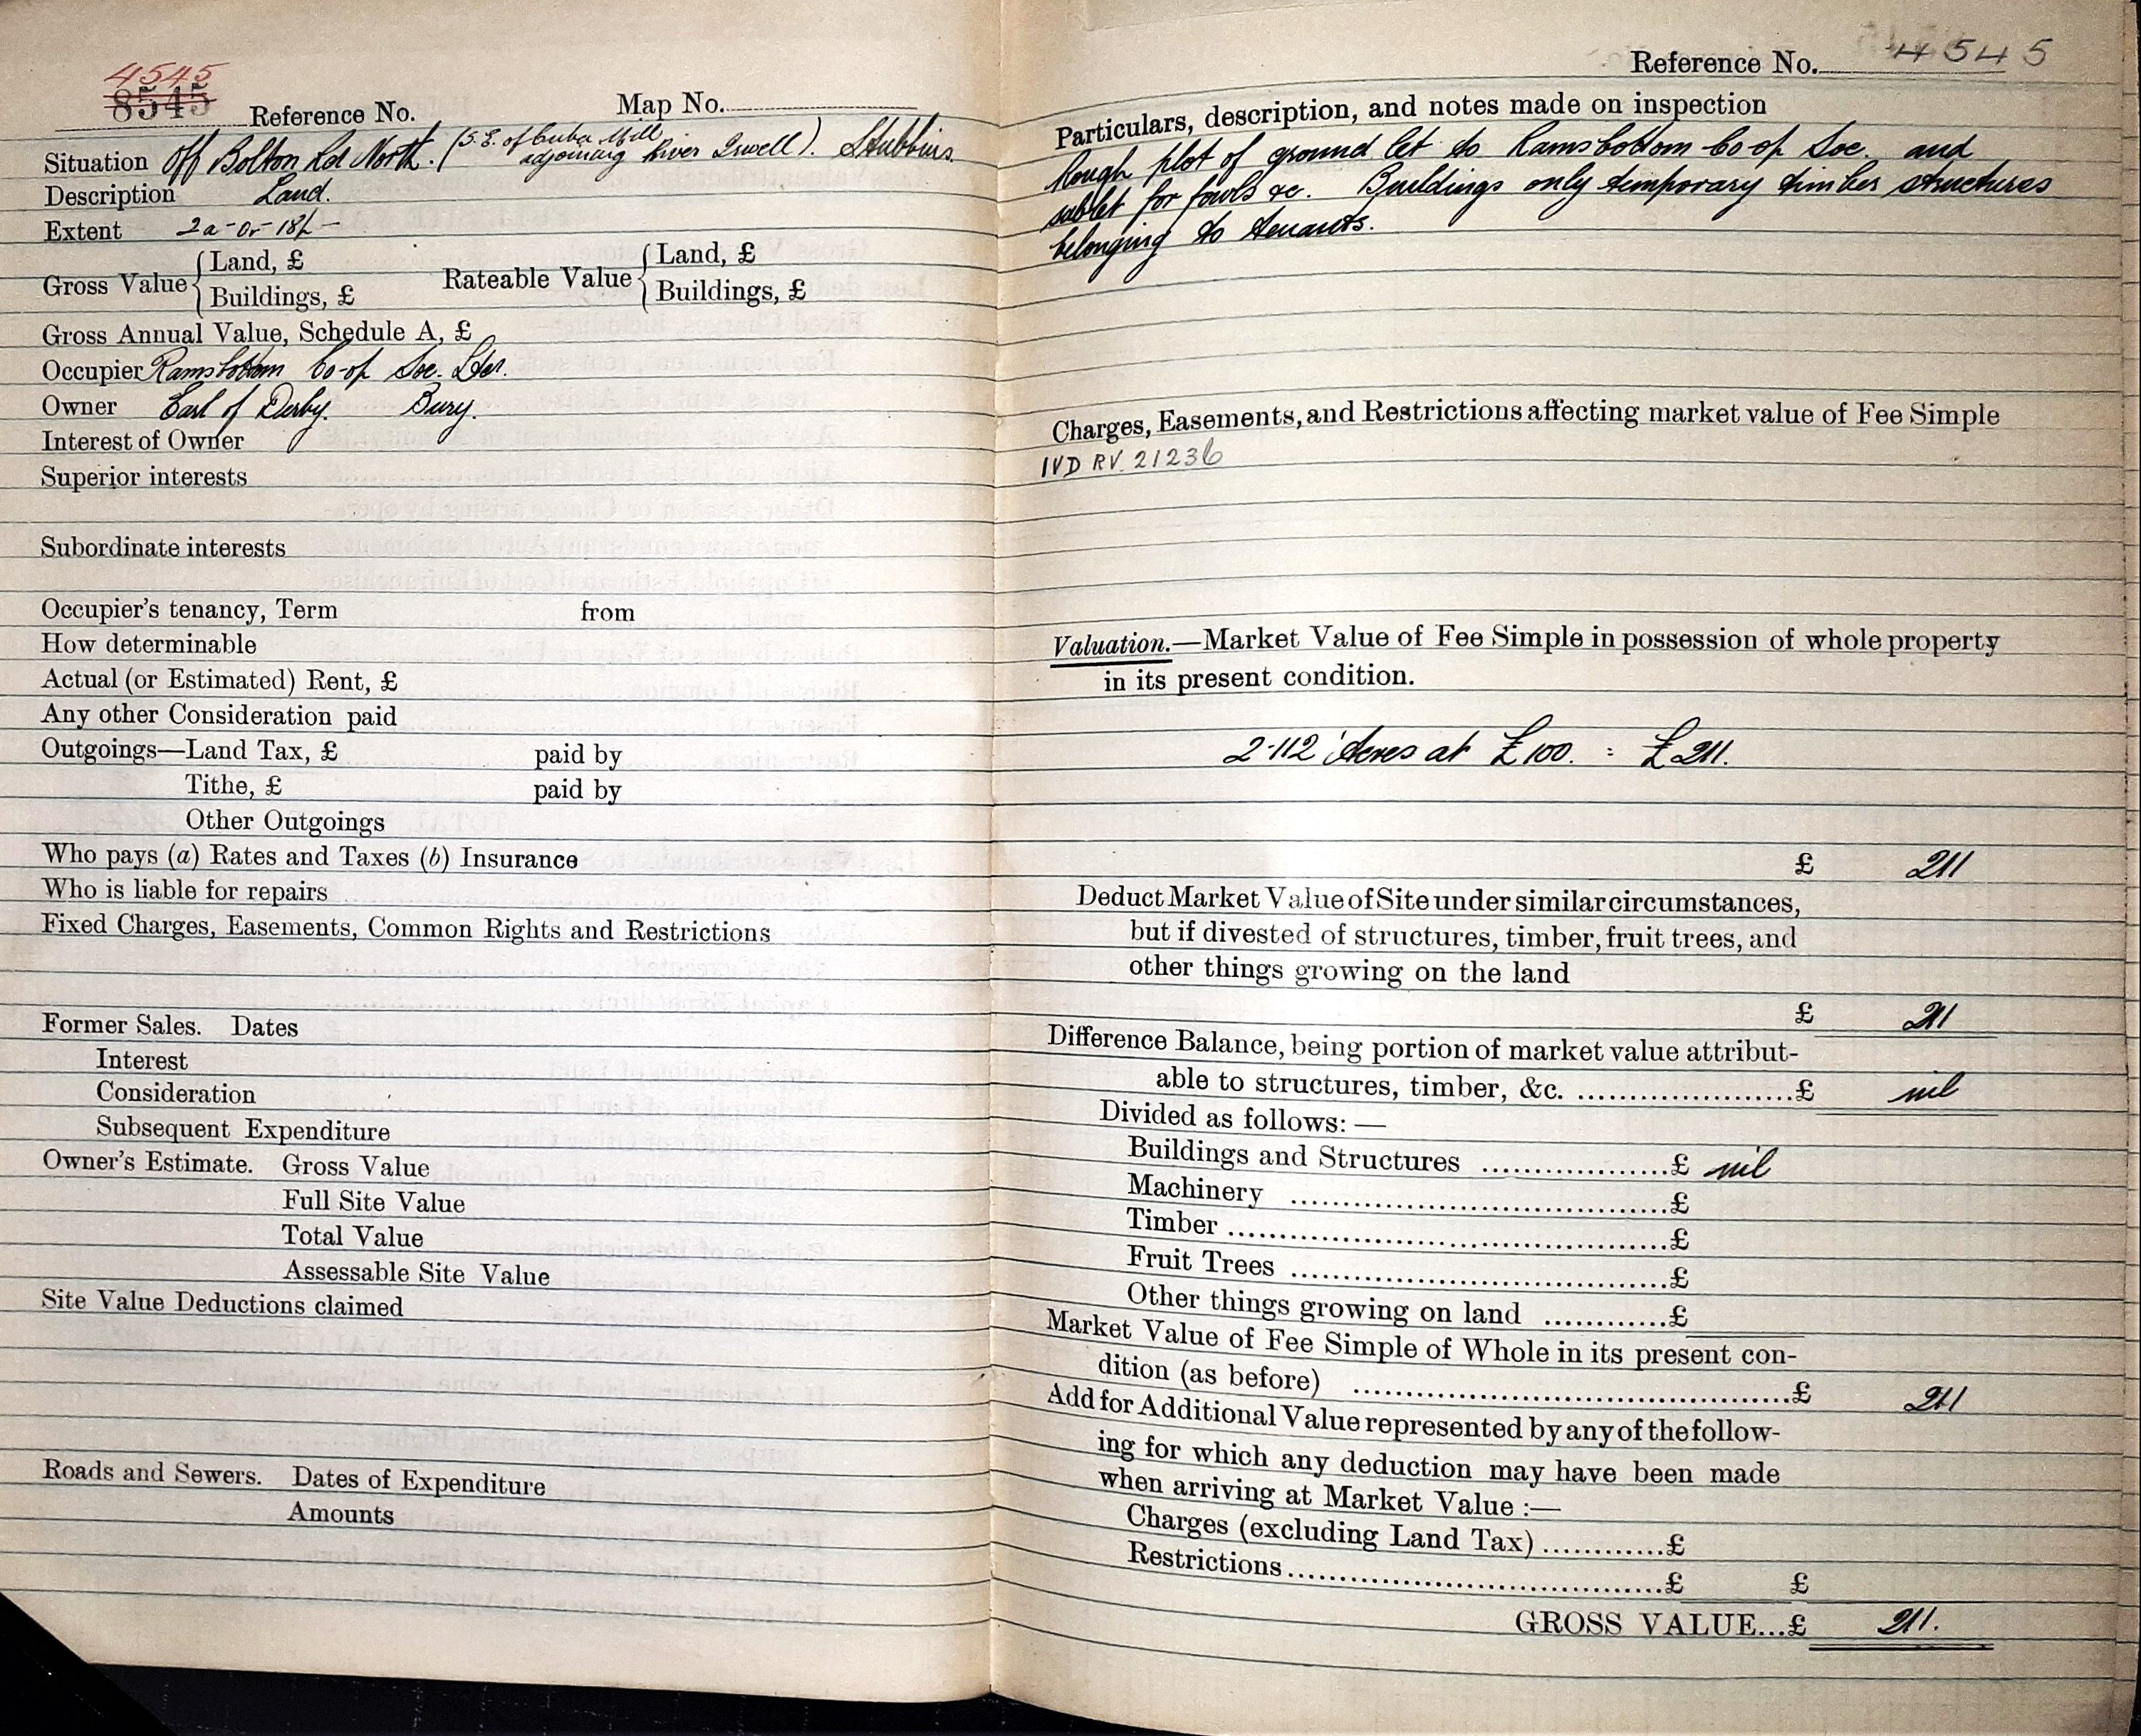 4545
8545 Reference No. Map No.
Situation Off Bolton Rd North. (S.E. of Cuba Mill adjoining River Irwell). Stubbins.
Description Land.
Extent 2a-0r-18p-
Gross Value { Land, £ Rateable Value { Land, £
Buildings, £ Buildings, £
Gross Annual Value, Schedule A, £
Occupier Ramsbottom Co-op Soc. Ltd.
Owner Earl of Derby. Bury.
Interest of Owner
Superior interests
Subordinate interests
Occupier's tenancy, Term from
How determinable
Actual (or Estimated) Rent, £
Any other Consideration paid
Outgoings—Land Tax, £ paid by
Tithe, £ paid by
Other Outgoings
Who pays (a) Rates and Taxes (b) Insurance
Who is liable for repairs
Fixed Charges, Easements, Common Rights and Restrictions
Former Sales. Dates
Interest
Consideration
Subsequent Expenditure
Owner's Estimate. Gross Value
Full Site Value
Total Value
Assessable Site Value
Site Value Deductions claimed
Roads and Sewers. Dates of Expenditure
Amounts
Reference No. 4545
Particulars, description, and notes made on inspection
Rough plot of ground let to Ramsbottom Co-op Soc. and
sublet for fowls &c. Buildings only temporary timber structures
belonging to tenants.
Charges, Easements, and Restrictions affecting market value of Fee Simple
IVD RV. 21236
Valuation.—Market Value of Fee Simple in possession of whole property
in its present condition.
2·112 Acres at £100. = £211.
£ 211
Deduct Market Value of Site under similar circumstances,
but if divested of structures, timber, fruit trees, and
other things growing on the land
£ 211
Difference Balance, being portion of market value attribut-
able to structures, timber, &c. ......................£ nil
Divided as follows: —
Buildings and Structures ...................£ nil
Machinery ......................................£
Timber ............................................£
Fruit Trees ......................................£
Other things growing on land ............£
Market Value of Fee Simple of Whole in its present con-
dition (as before) ............................................£ 211
Add for Additional Value represented by any of the follow-
ing for which any deduction may have been made
when arriving at Market Value :—
Charges (excluding Land Tax) ............£
Restrictions......................................£ £
GROSS VALUE...£ 211.